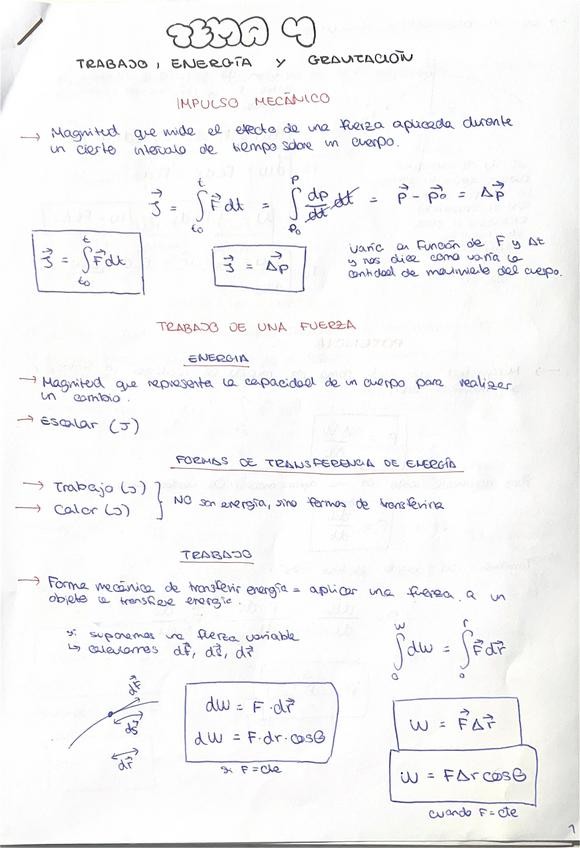 TEMA 4
TRABAJO, ENERGÍA Y GRAVITACIÓN
IMPULSO MECÁNICO
→ Magnitud que mide el efecto de una fuerza aplicada durante
un cierto intervalo de tiempo sobre un cuerpo.
J⃗ = ∫_{t₀}^{t} F⃗ dt = ∫_{p₀}^{p} dp/dt dt = p⃗ - p⃗₀ = Δp⃗
J⃗ = ∫_{t₀}^{t} F⃗ dt
J⃗ = Δp⃗
varía en función de F y Δt
y nos dice como varía la
cantidad de movimiento del cuerpo.
TRABAJO DE UNA FUERZA
ENERGIA
→ Magnitud que representa la capacidad de un cuerpo para realizar
un cambio.
→ Escalar (J)
FORMAS DE TRANSFERENCIA DE ENERGÍA
→ Trabajo (J)
→ Calor (J)
} NO son energía, sino formas de transferirla
TRABAJO
→ Forma mecánica de transferir energía = aplicar una fuerza a un
objeto le transfiere energía.
si suponemos una fuerza variable
↳ calculamos df⃗, ds⃗, dr⃗
dF⃗
ds⃗
dr⃗
dW = F · dr⃗
dW = F · dr · cosθ
si F = cte
∫_{0}^{W} dW = ∫_{0}^{r} F⃗ dr⃗
W = F⃗ Δr⃗
W = FΔr cosθ
cuando F = cte
1